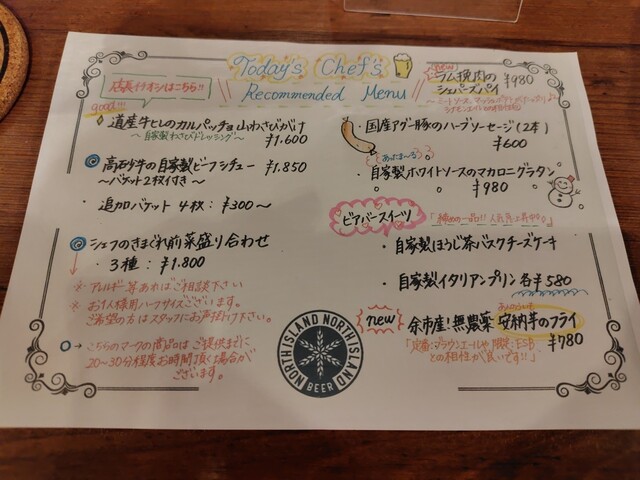 Today's Chef's
Recommended Menu
店長イチオシはこちら!!
good!!!
道産牛としのカルパッチョ 山わさびがけ
～自家製わさびドレッシング～
¥1.600
自家製ビーフシチュー ¥1.850
～バゲット2枚付き～
・追加バゲット 4枚：¥300～
シェフのきまぐれ前菜盛り合わせ
・3種：¥1.800
※アレルギー等あればご相談下さい
※お1人様用ハーフサイズございます。
ご希望の方はスタッフにお声掛け下さい。
→こちらのマークの商品はご提供までに
20～30分程度お時間頂く場合が
ございます。
new
ラム挽肉の
シェパーズパイ
¥980
・国産アグー豚のハーブソーセージ(2本)
¥600
あったまーる
・自家製ホワイトソースのマカロニグラタン
¥980
ビアバースイーツ
「締めの一品!!人気急上昇中
・自家製ほうじ茶バスクチーズケーキ
・自家製イタリアンプリン 各¥580
new
余市産！無農薬 安納芋のフライ
¥780
「定番：ブラウンエールや 限定：ESB
との相性が良いです!!」
NORTH ISLAND NORTH ISLAND
BEER